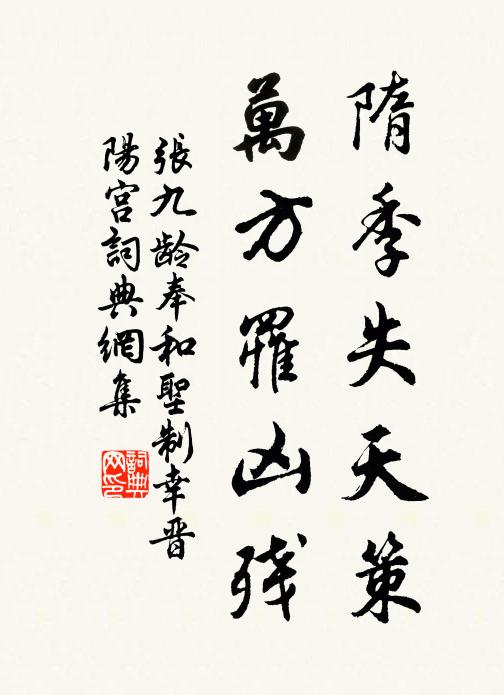 隋季失天策
萬方罹凶残
張九龄奉和聖制幸晋
陽宫詞典網集
詞典网印